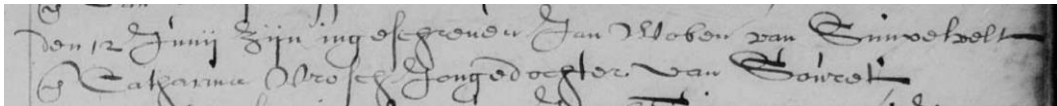 den 12 Junij zijn ingeschreven Jan Woben van Simpelvelt
Catharina Vrosch Jongedochter van Souret